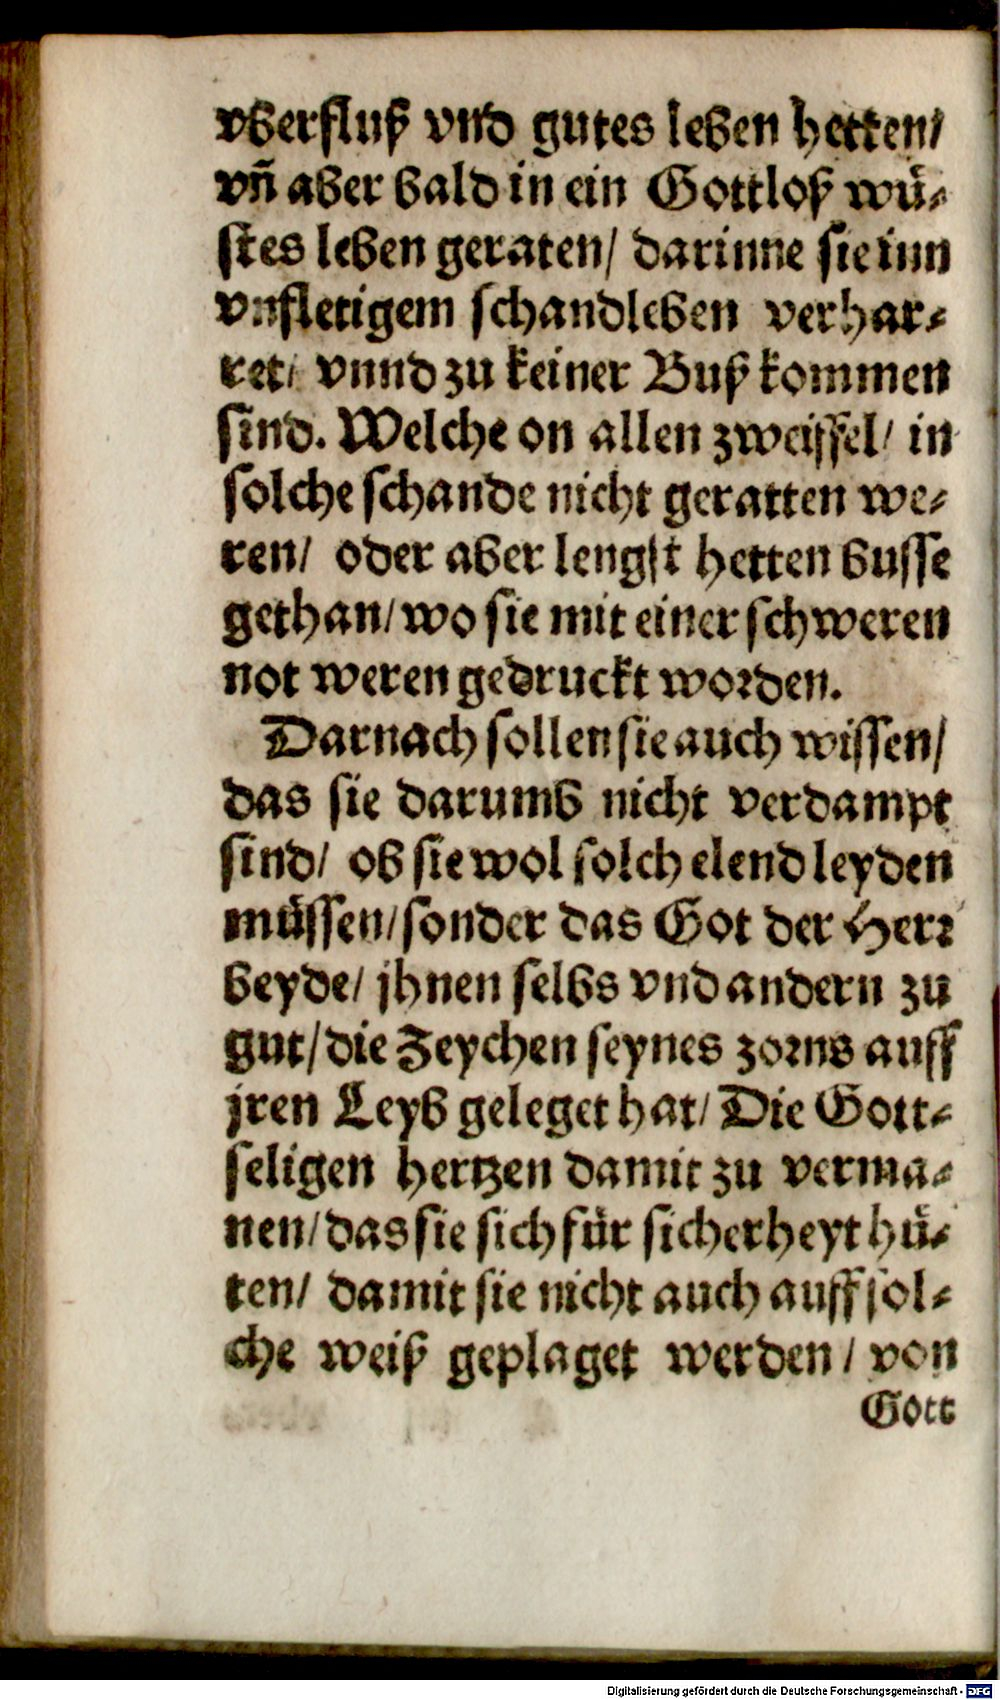 vberfluß vnd gutes leben hetten/
vñ aber bald in ein Gottloß wü⸗
stes leben geraten/ darinne sie inn
vnfletigem schandleben verhar⸗
ret/ vnnd zu keiner Buß kommen
sind. Welche on allen zweiffel/ in
solche schande nicht geratten we⸗
ren/ oder aber lengst hetten busse
gethan/ wo sie mit einer schweren
not weren gedruckt worden.
Darnach sollen sie auch wissen/
das sie darumb nicht verdampt
sind/ ob sie wol solch elend leyden
müssen/ sonder das Got der Herr
beyde/ jhnen selbs vnd andern zu
gut/ die Zeychen seynes zorns auff
jren Leyb geleget hat/ Die Gott⸗
seligen hertzen damit zu verma⸗
nen/ das sie sich für sicherheyt hü⸗
ten/ damit sie nicht auch auff sol⸗
che weiß geplaget werden/ von
Gott
Digitalisierung gefördert durch die Deutsche Forschungsgemeinschaft - DFG